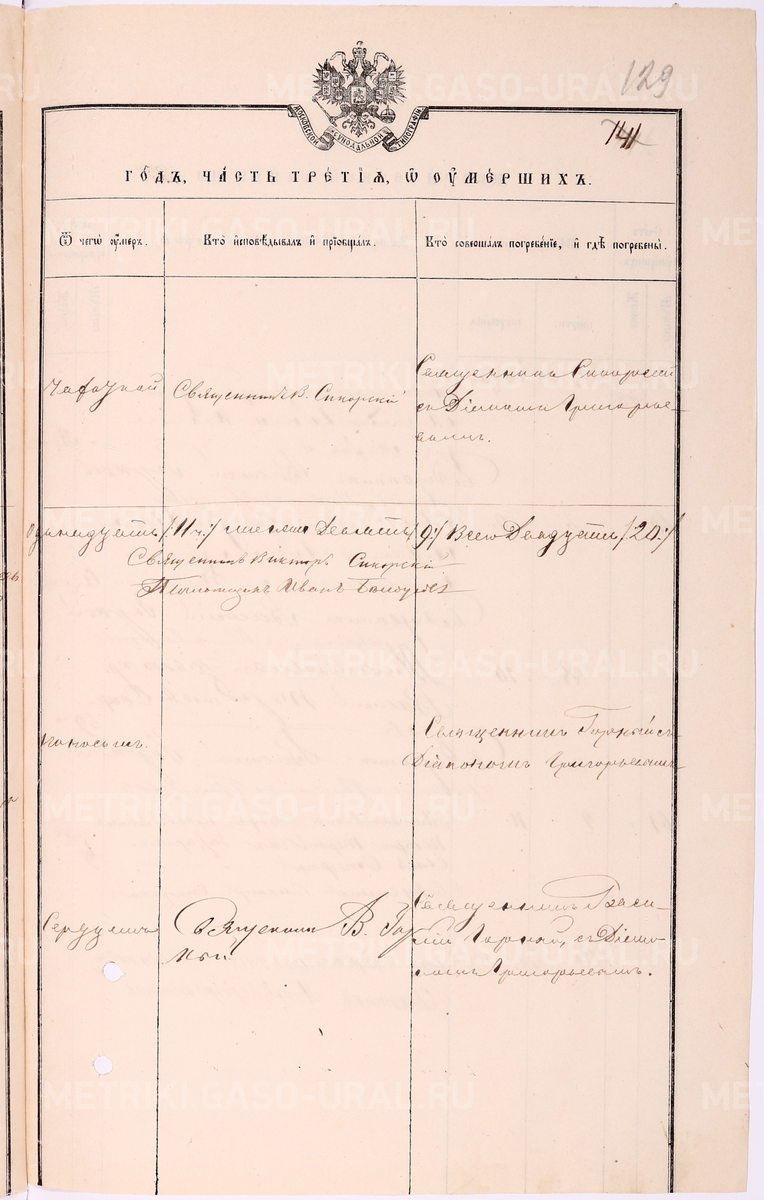 129
141
МОСКОВСКОЙ СѴНОДАЛЬНОЙ ТИПОГРАФІИ
ГОДЪ, ЧАСТЬ ТРЕТІЯ, Ѿ ОУМЕРШИХЪ.
Ѿ чегѡ оумеръ.
Кто исповѣдывалъ и прїобщалъ.
Кто совершалъ погребеніе, и гдѣ погребены.
Чахоткой
Священникъ В. Сикорскій
Священникъ Сикорскій
съ Діакономъ Григорье-
вымъ.
Одинадцать /:11 ч:/ женска Девять /9:/ Всего Двадцать /20:/
Священникъ Викторъ Сикорскій
Псаломщикъ Иванъ
поносомъ.
Священникъ Горный съ
Діакономъ Григорьевымъ
Священникъ В. Гор
ный
Священникъ Васи-
лій Горный, съ Діако-
номъ Григорьевымъ.
METRIKI.GASO-URAL.RU